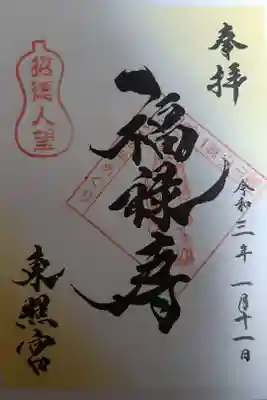 奉拝
令和三年 一月十一日
福禄寿
東照宮
招徳人望
めぐり